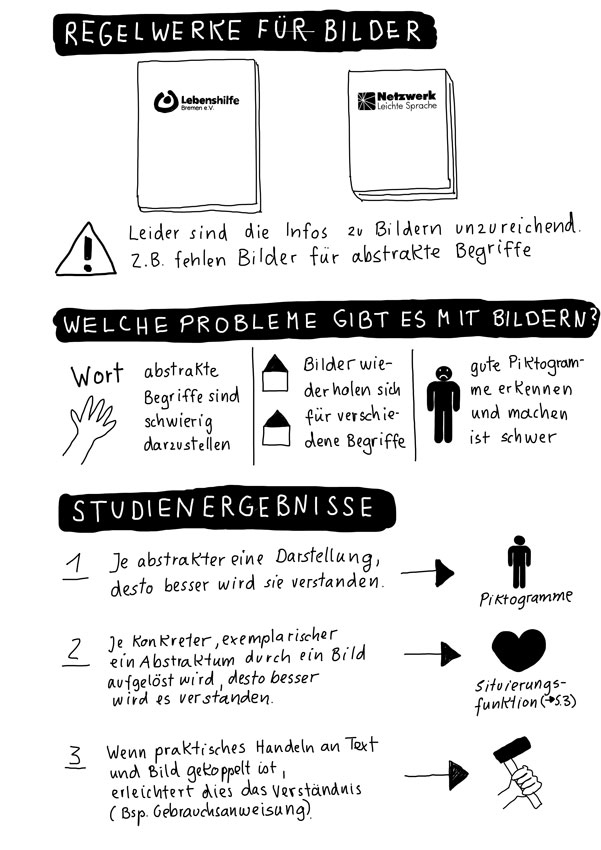 REGELWERKE FÜR BILDER
Lebenshilfe
Bremen e.V.
Netzwerk
Leichte Sprache
Leider sind die Infos zu Bildern unzureichend.
Z.B. fehlen Bilder für abstrakte Begriffe
WELCHE PROBLEME GIBT ES MIT BILDERN?
Wort
abstrakte
Begriffe sind
schwierig
darzustellen
Bilder wie-
derholen sich
für verschie-
dene Begriffe
gute Piktogram-
me erkennen
und machen
ist schwer
STUDIENERGEBNISSE
1
Je abstrakter eine Darstellung,
desto besser wird sie verstanden.
Piktogramme
2
Je konkreter, exemplarischer
ein Abstraktum durch ein Bild
aufgelöst wird, desto besser
wird es verstanden.
Situierungs-
funktion (→S.3)
3
Wenn praktisches Handeln an Text
und Bild gekoppelt ist,
erleichtert dies das Verständnis
(Bsp. Gebrauchsanweisung).